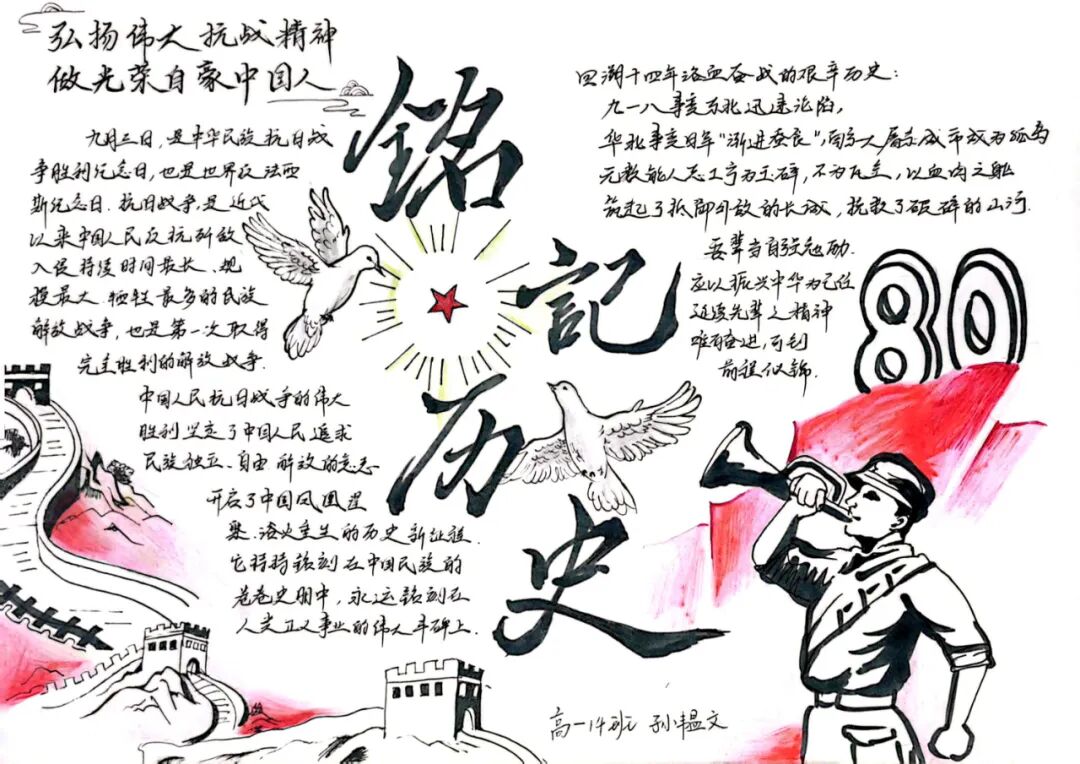 弘扬伟大抗战精神
做光荣自豪中国人
九月三日，是中华民族抗日战
争胜利纪念日，也是世界反法西
斯纪念日.抗日战争.是近代
以来中国人民反抗外敌
入侵持续时间最长、规
模最大.牺牲最多的民族
解放战争，也是第一次取得
完全胜利的解放战争.
中国人民抗日战争的伟大
胜利坚定了中国人民追求
民族独立、自由解放的意志
开启了中国凤凰涅
槃.浴火重生的历史新征程.
它将持铭刻在中国民族的
卷卷史册中，永远铭刻在
人类正义事业的伟大丰碑上.
銘
記
历
史
回溯十四年浴血奋战的艰辛历史：
九一八事变东北迅速沦陷，
华北事变日军“渐进蚕食”，南京大屠杀城市成为孤岛
无数能人志士宁为玉碎，不为瓦全，以血肉之躯
筑起了抵御外敌的长城，拯救了破碎的山河.
吾辈当自强勉励.
应以振兴中华为己任
延续先辈之精神
前程似锦.
80
高一14班 孙韫文